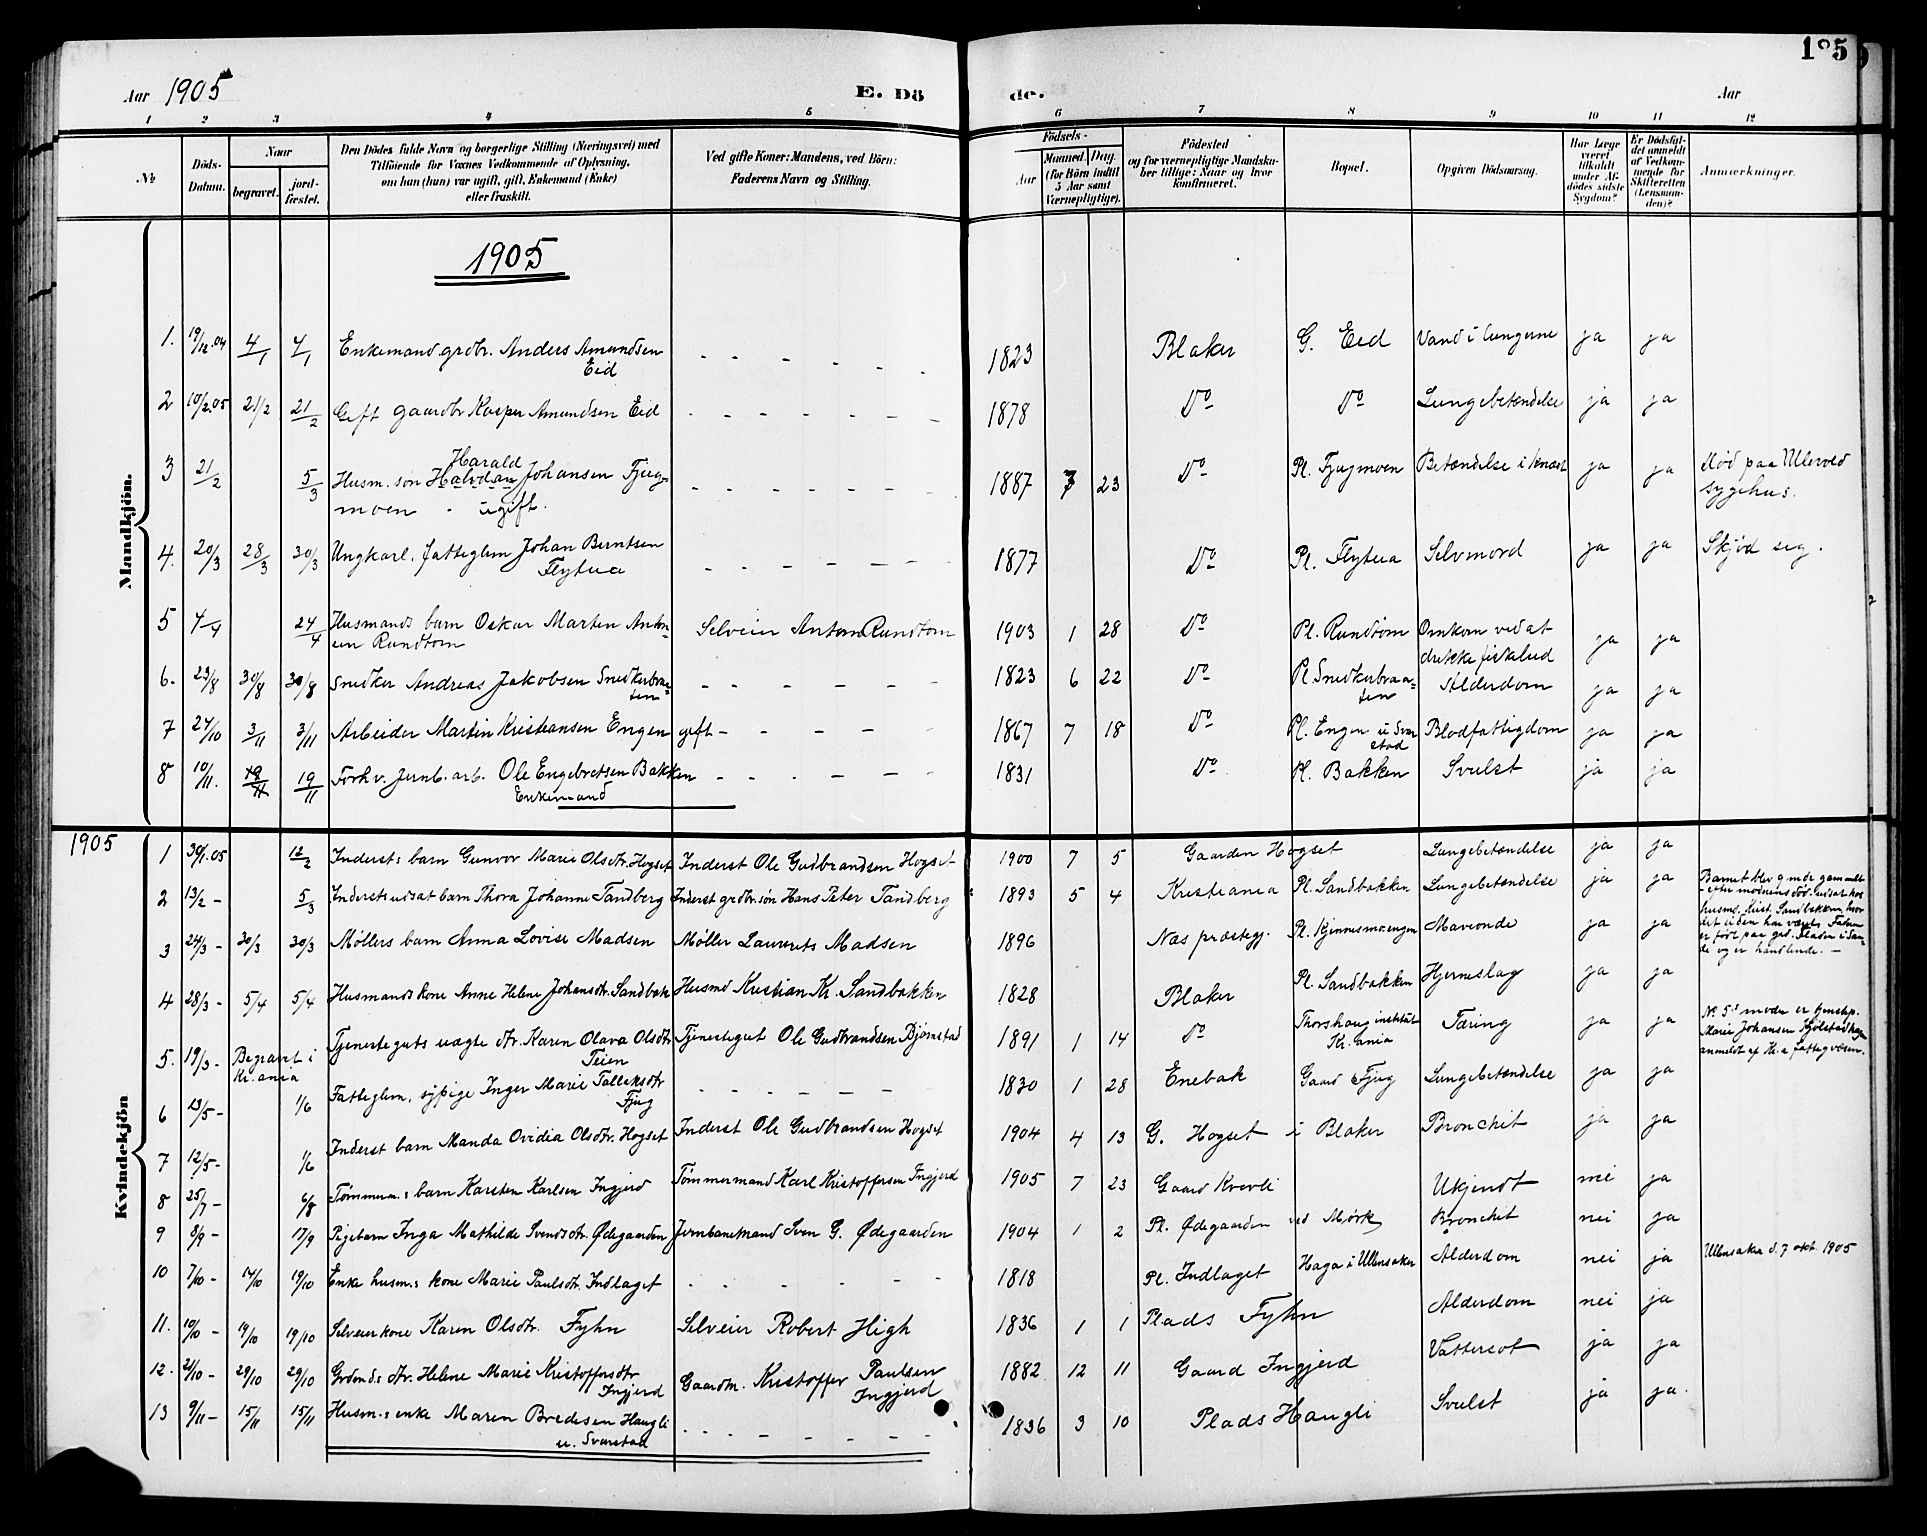 185
Aar 1905 E. Dö de. Aar
1 2 3 4 5 6 7 8 9 10 11 12
No
Döds-Datum.
Naar
begravet.
jord-fæstet.
Den Dödes fulde Navn og borgerlige Stilling (Næringsvei) med
Tilföiende for Voxnes Vedkommende af Oplysning,
om han (hun) var ugift, gift, Enkemand (Enke)
eller fraskilt.
Ved gifte Koner: Mandens, ved Börn:
Faderens Navn og Stilling.
Födsels-
Aar
Maaned. Dag.
(for Börn indtil
5 Aar samt
Værnepligtige).
Födested
og for værnepligtige Mandska-
ber tillige: Naar og hvor
konfirmeret.
Bopæl.
Opgiven Dödsaarsag.
Har Læge
været
tilkaldt
under Af-
dödes sidste
Sygdom?
Er Dödsfal-
det anmeldt
af Vedkom-
mende for
Skifteretten
(Lensman-
den)?
Anmærkninger.
1905
Mandkjön.
1. 19/12.04 4/1 4/1 Enkemand grdbr. Anders Amundsen Eid 1823 Blaker G. Eid Vand i lungerne ja ja
2 10/2.05 21/2 21/2 Gift gaardbr Kasper Amundsen Eid 1878 Do Do Lungebetændelse ja ja
3 21/2 5/3 Husm. søn Halvdan Harald Johansen Fjug-
moen - ugift. 1887 7 23 Do Pl. Fjugmoen Betændelse i knæet ja ja død paa Ullevold
sygehus.
4. 20/3 28/3 30/3 Ungkarl. fatteglem Johan Berntsen
Flytua 1877 Do Pl. Flytua Selvmord ja ja Skjød seg.
5 4/4 24/4 Husmands barn Oskar Marten Anton-
sen Rundtom Selveier Anton Rundtom 1903 1 28 Do Pl. Rundtom Omkom ved at
drikke fiskelud ja ja
6. 23/8 30/8 30/8 Snedker Andreas Jakobsen Snedkerbraa-
ten 1823 6 22 Do Pl Snedkerbraa-
ten Alderdom ja ja
7 24/10 3/11 3/11 Arbeider Martin Kristiansen Engen gift 1867 7 18 Do Pl. Engen u Svar
stad Blodfattigdom ja ja
8 10/11. 19/11 19/11 Forhv. Jernb. arb. Ole Engebretsen Bakken
Enkemand 1831 Do Pl. Bakken Svulst ja ja
1905
Kvindekjön
1 30/1.05 12/2 Inderst: barn Gunvor Marie Olsdtr. Hogset Inderst Ole Gudbrandsen Hogset 1900 7 5 Gaarden Hogset Lungebetændelse ja ja
2 13/2 - 5/3 Inderst: udsat barn Thora Johanne Tandberg Inderst grdbr. søn Hans Peter Tandberg 1893 5 4 Kristiania Pl. Sandbakken Lungebetændelse ja ja Barnet blev 9 mdr gammelt
- efter modrens død - udsat hos
husmd. Krist. Sandbakken, hvor
det siden har været. Faderen
er født paa grd.
de og er handlende. -
3 24/3 - 30/3 30/3 Møllers barn Anna Lovise Madsen Møller Laurets Madsen 1896 Næs præstegj. Pl. Kjinnesmoengen Mavonde ja ja
4 28/3 - 5/4 5/4 Husmands kone Anne Helene Johansdtr. Sandbak Husmd Kristian Kr. Sandbakken 1828 Blaker Pl. Sandbakken Hjerneslag ja ja
5. 19/3 - Begravet i
Kr. ania Tjenesteguts uægte dtr. Karen Olava Olsdtr
Teien Tjenestegut Ole Gudbrandsen Bjørnstad 1891 1 14 Do Thorshaug institut
Kr. ania Tæring ja ja No 5's moder er tjenstep.
Marie Johansen
anmeldt af Kr.a fattigvæsen.
6 13/5 - 1/6 Fatteglem, sypige Inger Marie Tollefsdtr
Fjug 1830 1 28 Enebak Gaard Fjug Lungebetændelse ja ja
7 12/5 - 1/6 Inderst barn Manda Ovidia Olsdtr. Hogset Inderst Ole Gudbrandsen Hogset 1904 4 13 G. Hogset i Blaker Bronchit ja ja
8 25/7 - 6/8 Tømmerm.: barn Karsten Karlsen Ingjerd Tømmermand Karl Kristoffersen Ingjerd 1905 7 23 Gaard Kverli Ukjendt nei ja
9 8/9 - 17/9 Pigebarn Inga Mathilde Svendsdtr. Ødegaarden Jernbanemand Sven G. Ødegaarden 1904 1 2 Pl. Ødegaarden ved Mørk Bronchit nei ja
10 7/10 - 14/10 19/10 Enke husm.: kone Marie Paulsdtr. Indlaget 1818 Pl. Indlaget Haga i Ullensaker Alderdom nei ja Ullensaker d. 7 okt. 1905
11. 10/10 - 19/10 19/10 Selveier kone Karen Olsdtr. Fyhn Selveier Robert High 1836 1 1 Plads Fyhn Alderdom nei ja
12. 21/10 - 29/10 29/10 Grdmds dtr. Helene Marie Kristoffersdtr
Ingjerd Gaardm. Kristoffer Paulsen
Ingjerd 1882 12 11 Gaard Ingjerd Vattersot ja ja
13 9/11 - 15/11 15/11 Husm.: enke Maren Bredesen Haugli
u. Svarstad 1836 3 10 Plads Haugli Svulst ja ja.